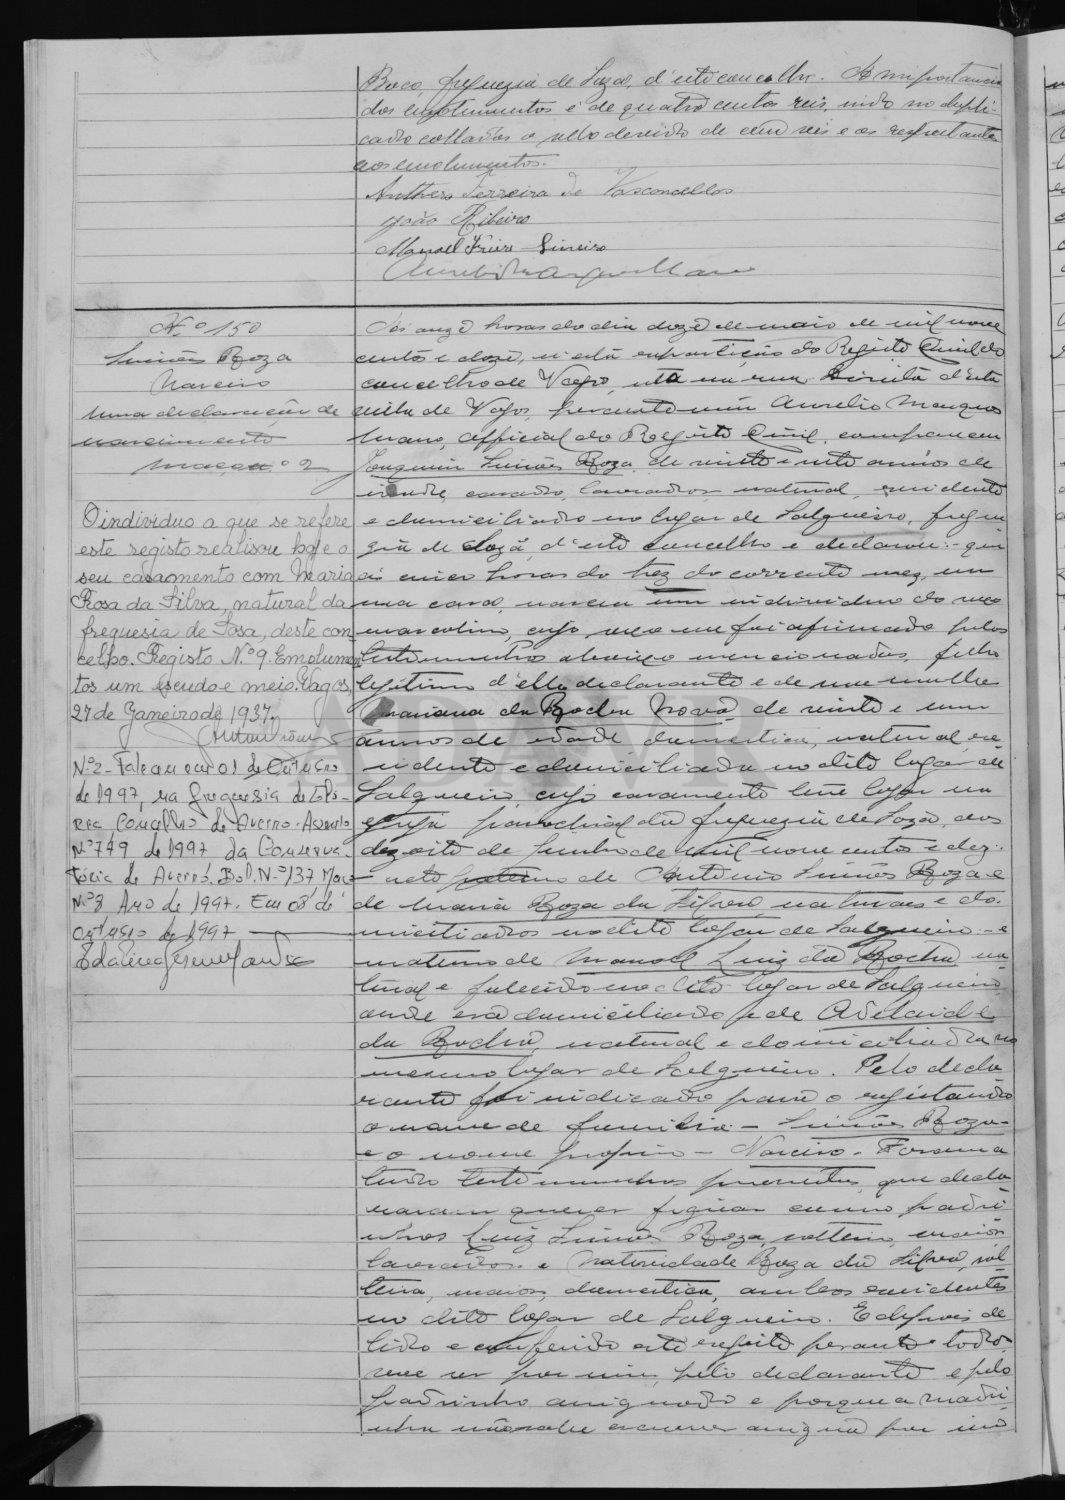 Boco, freguezia de Soza, d'este concelho. A importancia
dos emolumentos é de quatro centos reis, indo no dupli-
cado collados o sello devido de cem reis e os respeitantes
aos emolumentos.
Anthero Ferreira de Vasconcellos
João Ribeiro
Manoel Sineiro
N.º 150
Simões Roza
Narciso
uma declaração de
nascimento
maço n.º 2
O individuo a que se refere
este registo realisou hoje o
seu casamento com Maria
Rosa da Silva, natural da
freguesia de Sosa, deste con
celho. Registo N.º 9. Emolumen
tos um escudo e meio. Vagos,
27 de Janeiro de 1937.
N.º 2 - Faleceu em 01 de Outubro
de 1997, na freguesia de
concelho de Aveiro. Assento
N.º 749 de 1997 da Conserva-
tória de Aveiro. Bol. N.º 137, Maço
N.º 8 Ano de 1997. Em 08 de
Outubro de 1997
Ás onze horas do dia doze de maio de mil nove
centos e doze, n'esta repartição do Registo Civil do
concelho de Vagos, sita na rua Direita d'esta
villa de Vagos, perante mim Aurelio Marques
Mano, official do Registo Civil, compareceu
Joaquim Simões Roza, de vinte e sete annos de
idade, casado, lavrador, natural, residente
e domiciliado no logar de Salgueiro, fregue
zia de Sozã, d'este concelho e declarou: - que
ás cinco horas do trez do corrente mez, em
sua casa, nasceu um individuo do sexo
masculino, cujo sexo me foi afirmado pelas
testemunhas abaixo mencionadas, filho
legitimo d'elle declarante e de sua mulher
Mariana da Rocha Nova, de vinte e um
annos de idade, domestica, natural, re-
sidente e domiciliada no dito logar de
Salgueiro, cujo casamento teve logar na
egreja parochial da freguezia de Soza, aos
dezoito de Junho de mil nove centos e dez:
- neto paterno de Antonio Simões Roza e
de Maria Roza da Silva, naturaes e do-
miciliados no dito logar de Salgueiro: - e
materno de Manoel Luiz da Rocha, na
tural e falecido no dito logar de Salgueiro,
onde era domiciliado, e de Adelaide
da Rocha, natural e domiciliada no
mesmo logar de Salgueiro. Pelo decla
rante foi indicado para o registando
o nome de familia - Simões Roza -
e o nome proprio - Narciso. Foram a
tudo testemunhas presentes, que decla
raram querer figurar como padri
nhos Luiz Simões Roza, solteiro, maior,
lavrador e Natividade Roza da Silva, sol
teira, maior, domestica, ambos residentes
no dito logar de Salgueiro. E depois de
lido e conferido este registo perante todos,
vae ser por mim, pelo declarante e pelo
padrinho assignado e porque a madri
nha não sabe escrever assigna por ella